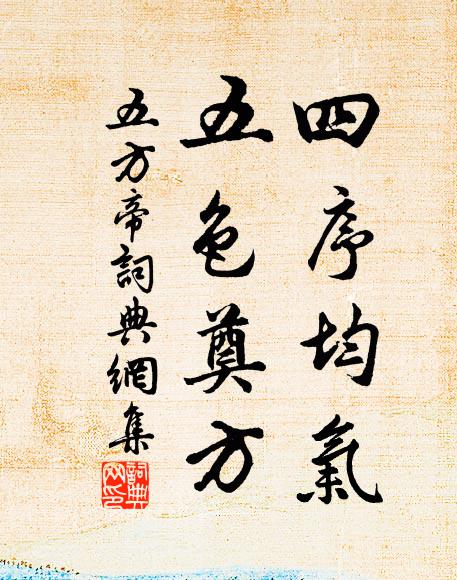 四序均氣
五色奠方
五方帝詞典網集
詞典網印